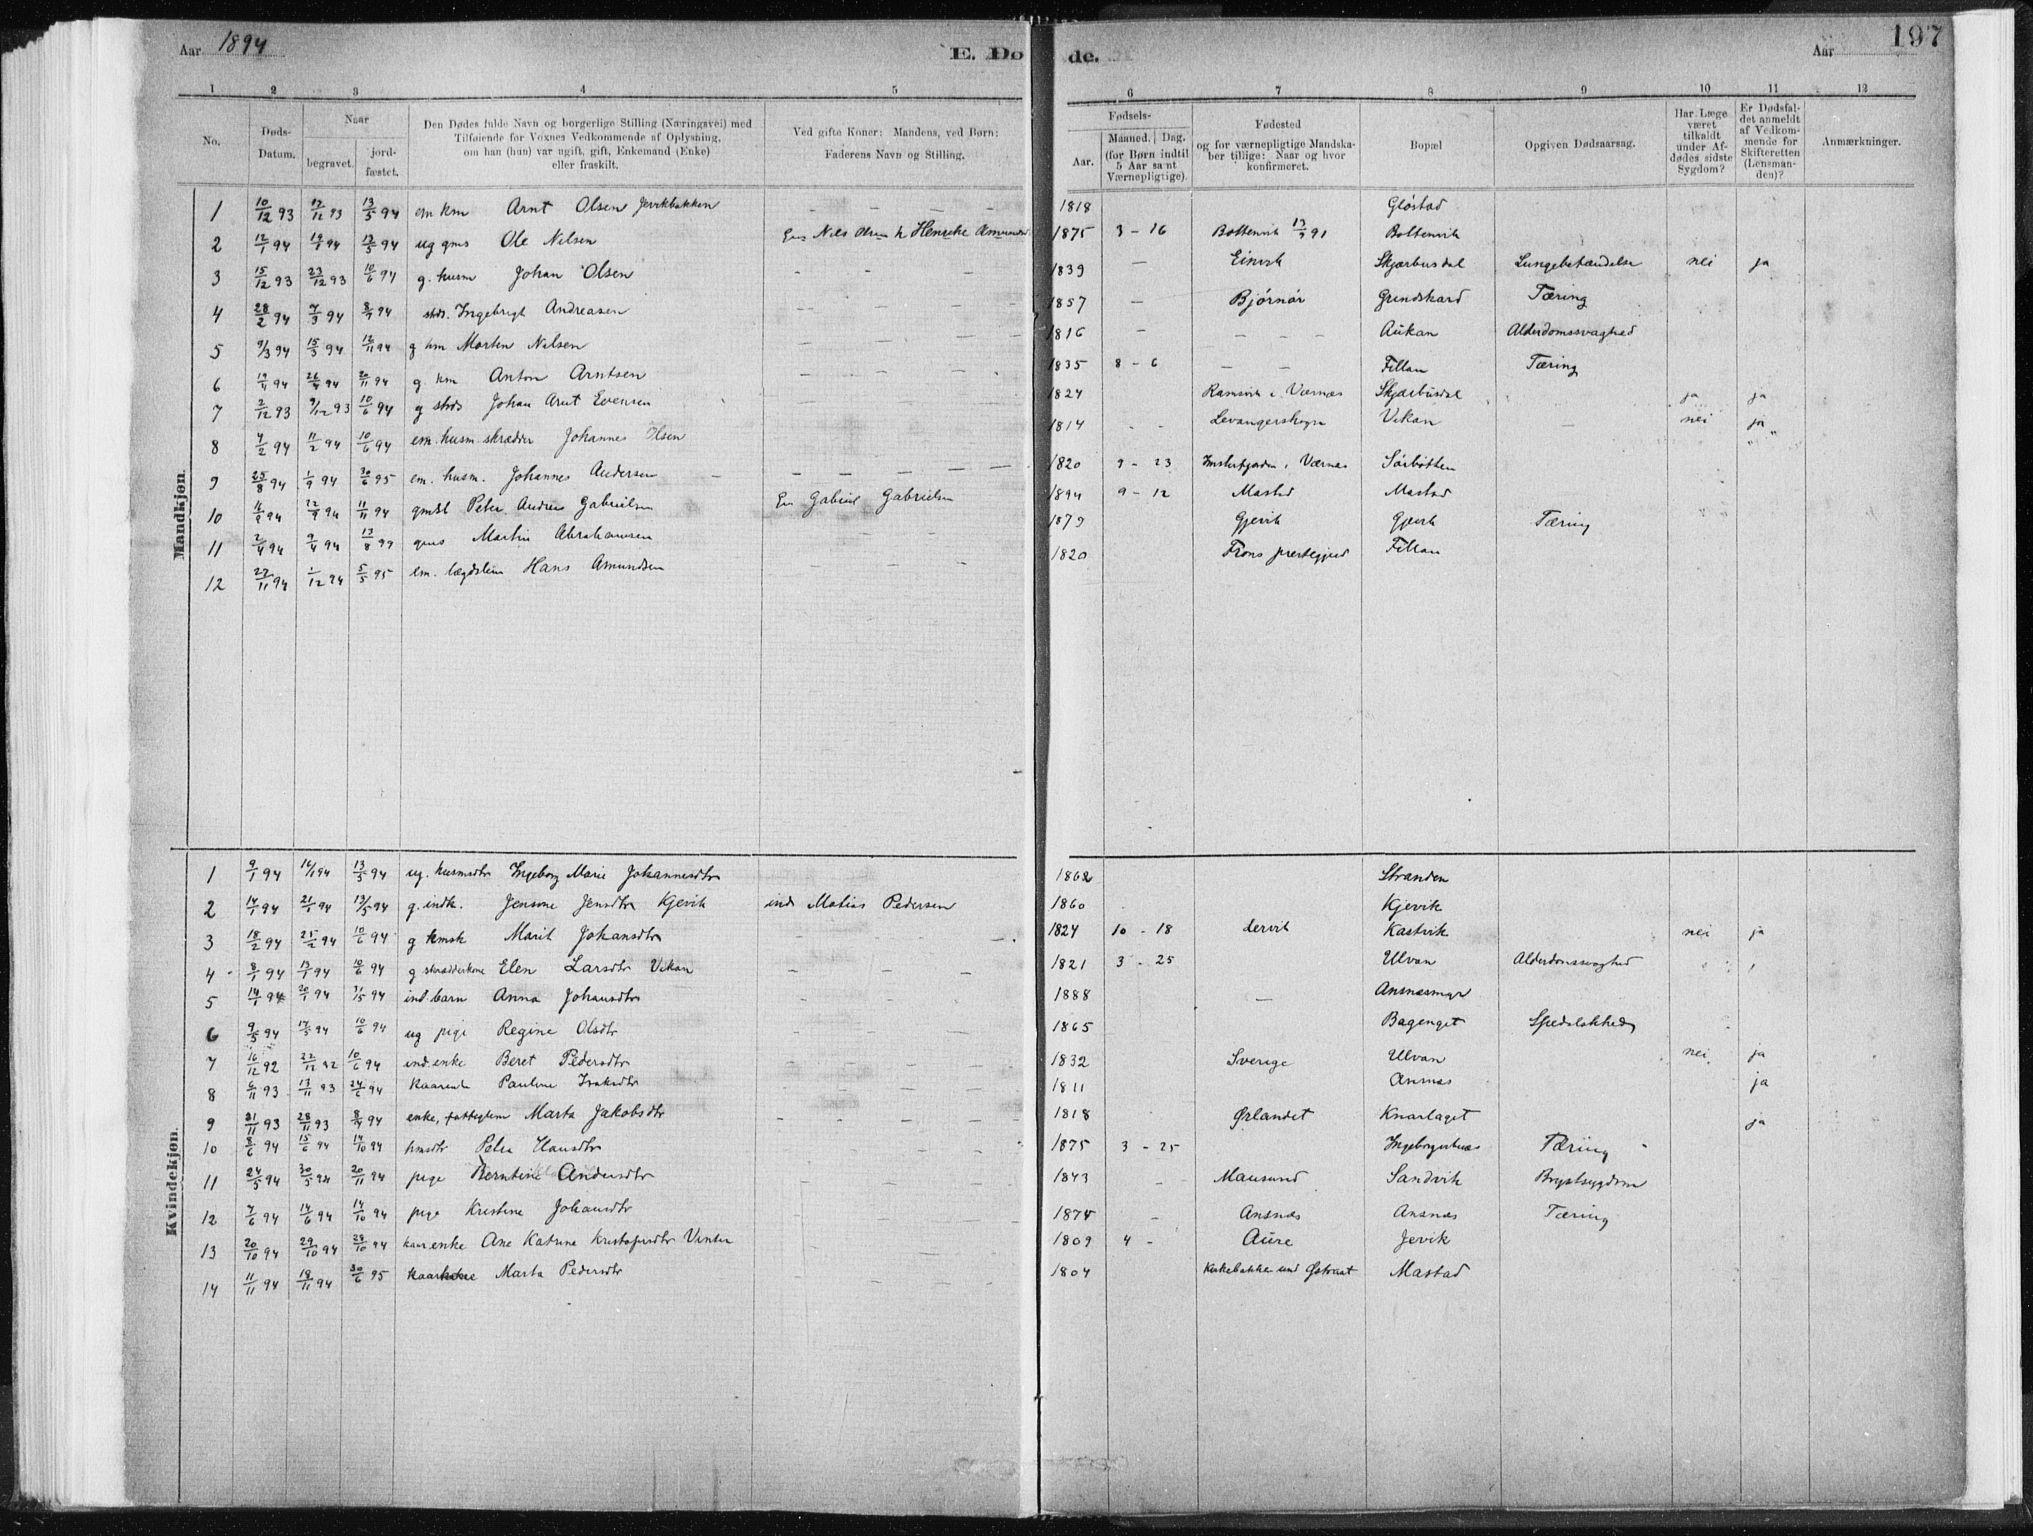 Aar 1894
E. Dø
de.
Aar
197
1 2 3 4 5 6 7 8 9 10 11 12
No.
Døds-Datum.
Naar
begravet.
jord-fæstet.
Den Dødes fulde Navn og borgerlige Stilling (Næringsvei) med
Tilføiende for Voxnes Vedkommende af Oplysning,
om han (hun) var ugift, gift, Enkemand (Enke)
eller fraskilt.
Ved gifte Koner: Mandens, ved Børn:
Faderens Navn og Stilling.
Fødsels-
Aar.
Maaned. Dag.
(for Børn indtil
5 Aar samt
Værnepligtige).
Fødested
og for værnepligtige Mandska-
ber tillige: Naar og hvor
konfirmeret.
Bopæl
Opgiven Dødsaarsag.
Har Læge
været
tilkaldt
under Af-
dødes sidste
Sygdom?
Er Dødsfal-
det anmeldt
af Vedkom-
mende for
Skifteretten
(Lensman-
den)?
Anmærkninger.
Mandkjøn.
1 10/12 93 17/12 93 13/5 94 em km Arnt Olsen Jevikbakken 1818 Gløstad
2 12/1 94 19/1 94 13/5 94 ug gms Ole Nilsen Nils Olsen h Henrike Amundsd 1875 3 - 16 Bottenvik 13/9 91 Bottenvik
3 15/12 93 23/12 93 10/6 94 g. husm Johan Olsen 1839 Einvik Skjærbusdal Lungebetændelse nei ja
4 28/2 94 7/3 94 8/7 94 strds. Ingebrigt Andreasen 1857 Bjørnør Grindskard Tæring
5 9/3 94 15/3 94 12/11 94 g km Morten Nilsen 1816 Aukan Alderdomssvaghed
6 19/4 94 26/4 94 20/11 94 g km Anton Arntsen 1835 8 - 6 Fillan Tæring
7 2/12 93 9/12 93 10/6 94 g strds Johan Arnt Evensen 1824 Ramsvik i Værnæs Skjærbusdal ja ja
8 4/2 94 11/2 94 10/6 94 em. husm. skrædder Johannes Ilsen 1814 Levangerskogn Vikan nei ja
9 25/8 94 1/9 94 30/6 95 em. husm. Johannes Andersen 1820 9 - 23 Værnæs Sørbotten
10 94 22/9 94 11/11 94 gmst Peter Andreas Gabrielsen Gabriel Gabrielsen 1894 9 - 12 Mastad Mastad
11 2/4 94 9/4 94 13/8 99 gms Martin Abrahamsen 1879 Gjevik Gjevik Tæring
12 27/11 94 1/12 94 5/5 95 em. lægdslem Hans Amundsen 1820 Frons prestegjeld Fillan
Kvindekjøn.
1 9/1 94 16/1 94 13/5 94 ug. husmdtr Ingeborg Marie Johannesdtr 1862 Stranden
2 14/1 94 21/1 94 13/5 94 g. indk. Jensine Jensdtr Kjevik ind Matias Pedersen 1860 Kjevik
3 18/2 94 25/2 94 10/6 94 g kmsk Marit Johansdtr 1824 10 - 18 Kastvik nei ja
4 8/1 94 13/1 94 10/6 94 g skrædderkone Elen Larsdtr Vikan 1821 3 - 25 Ulvan Alderdomssvaghed
5 14/1 94 20/1 94 94 ind. barn Anna Johansdtr 1888 Ansnæsmyr
6 9/5 94 17/5 94 10/6 94 ug pige Regine Olsdtr 1865 Bagenget Spedalskhed
7 16/12 92 22/12 92 10/6 94 ind. enke Beret Pedersdtr 1832 Sverige Ulvan nei ja
8 6/11 93 13/11 93 24/6 94 kaarenk Pauline Isaksdtr 1811 Ansnæs ja
9 21/11 93 28/11 93 8/7 94 enke, fattiglem Marta Jakobsdtr 1818 Ørlandet Knarlaget ja
10 8/6 94 15/6 94 14/10 94 hmsdtr Petra Hansdtr 1875 3 - 25 Ingeborgviknæs Tæring
11 24/5 94 30/5 94 20/11 94 pige Berntine Andersdtr 1843 Mausund Sandvik Brystsygdom
12 7/6 94 14/6 94 14/10 94 pige Kristine Johansdtr 1874 Ansnæs Ansnæs Tæring
13 20/10 94 29/10 94 28/10 94 kaarenke Ane Katrine Kristofersdtr Vinter 1809 4 - Aure Jevik
14 11/11 94 19/11 94 30/6 95 kaarkone Marta Pedersdtr 1804 Kirkebakken und Østraat Mastad